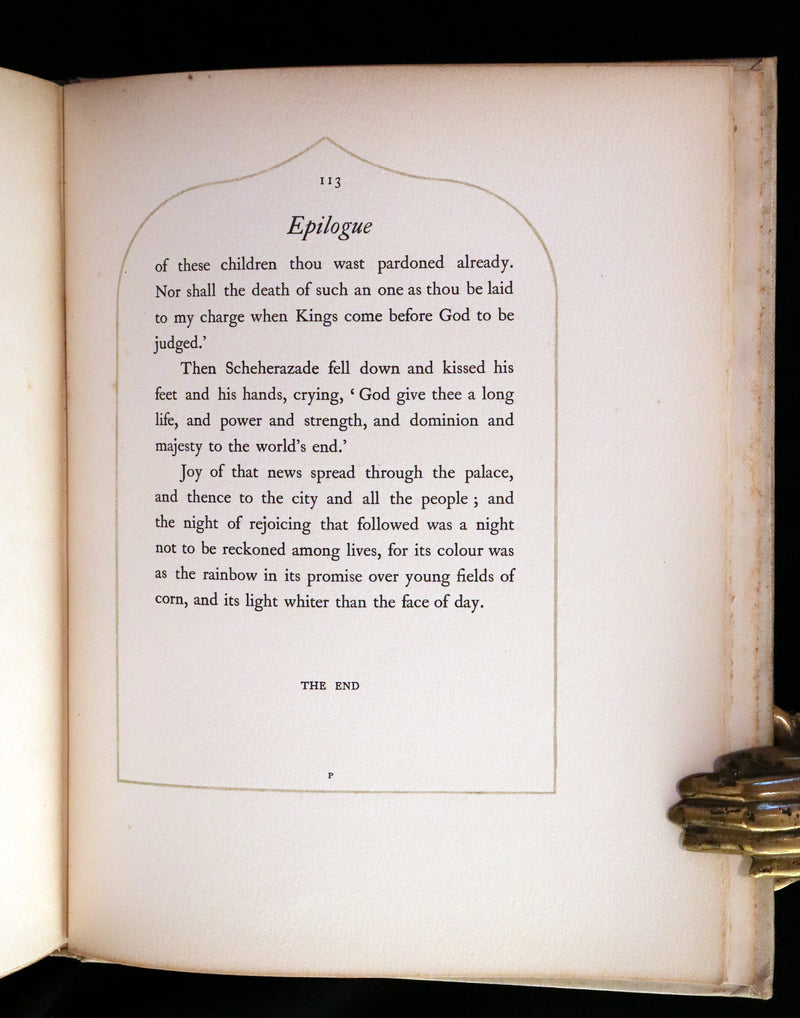 113
Epilogue
of these children thou wast pardoned already.
Nor shall the death of such an one as thou be laid
to my charge when Kings come before God to be
judged.’
Then Scheherazade fell down and kissed his
feet and his hands, crying, ‘ God give thee a long
life, and power and strength, and dominion and
majesty to the world’s end.’
Joy of that news spread through the palace,
and thence to the city and all the people ; and
the night of rejoicing that followed was a night
not to be reckoned among lives, for its colour was
as the rainbow in its promise over young fields of
corn, and its light whiter than the face of day.
THE END
P